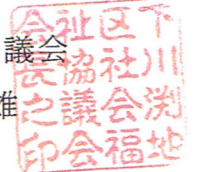 議会
雄
下川渕地
区社会福
祉協議会
会長之印